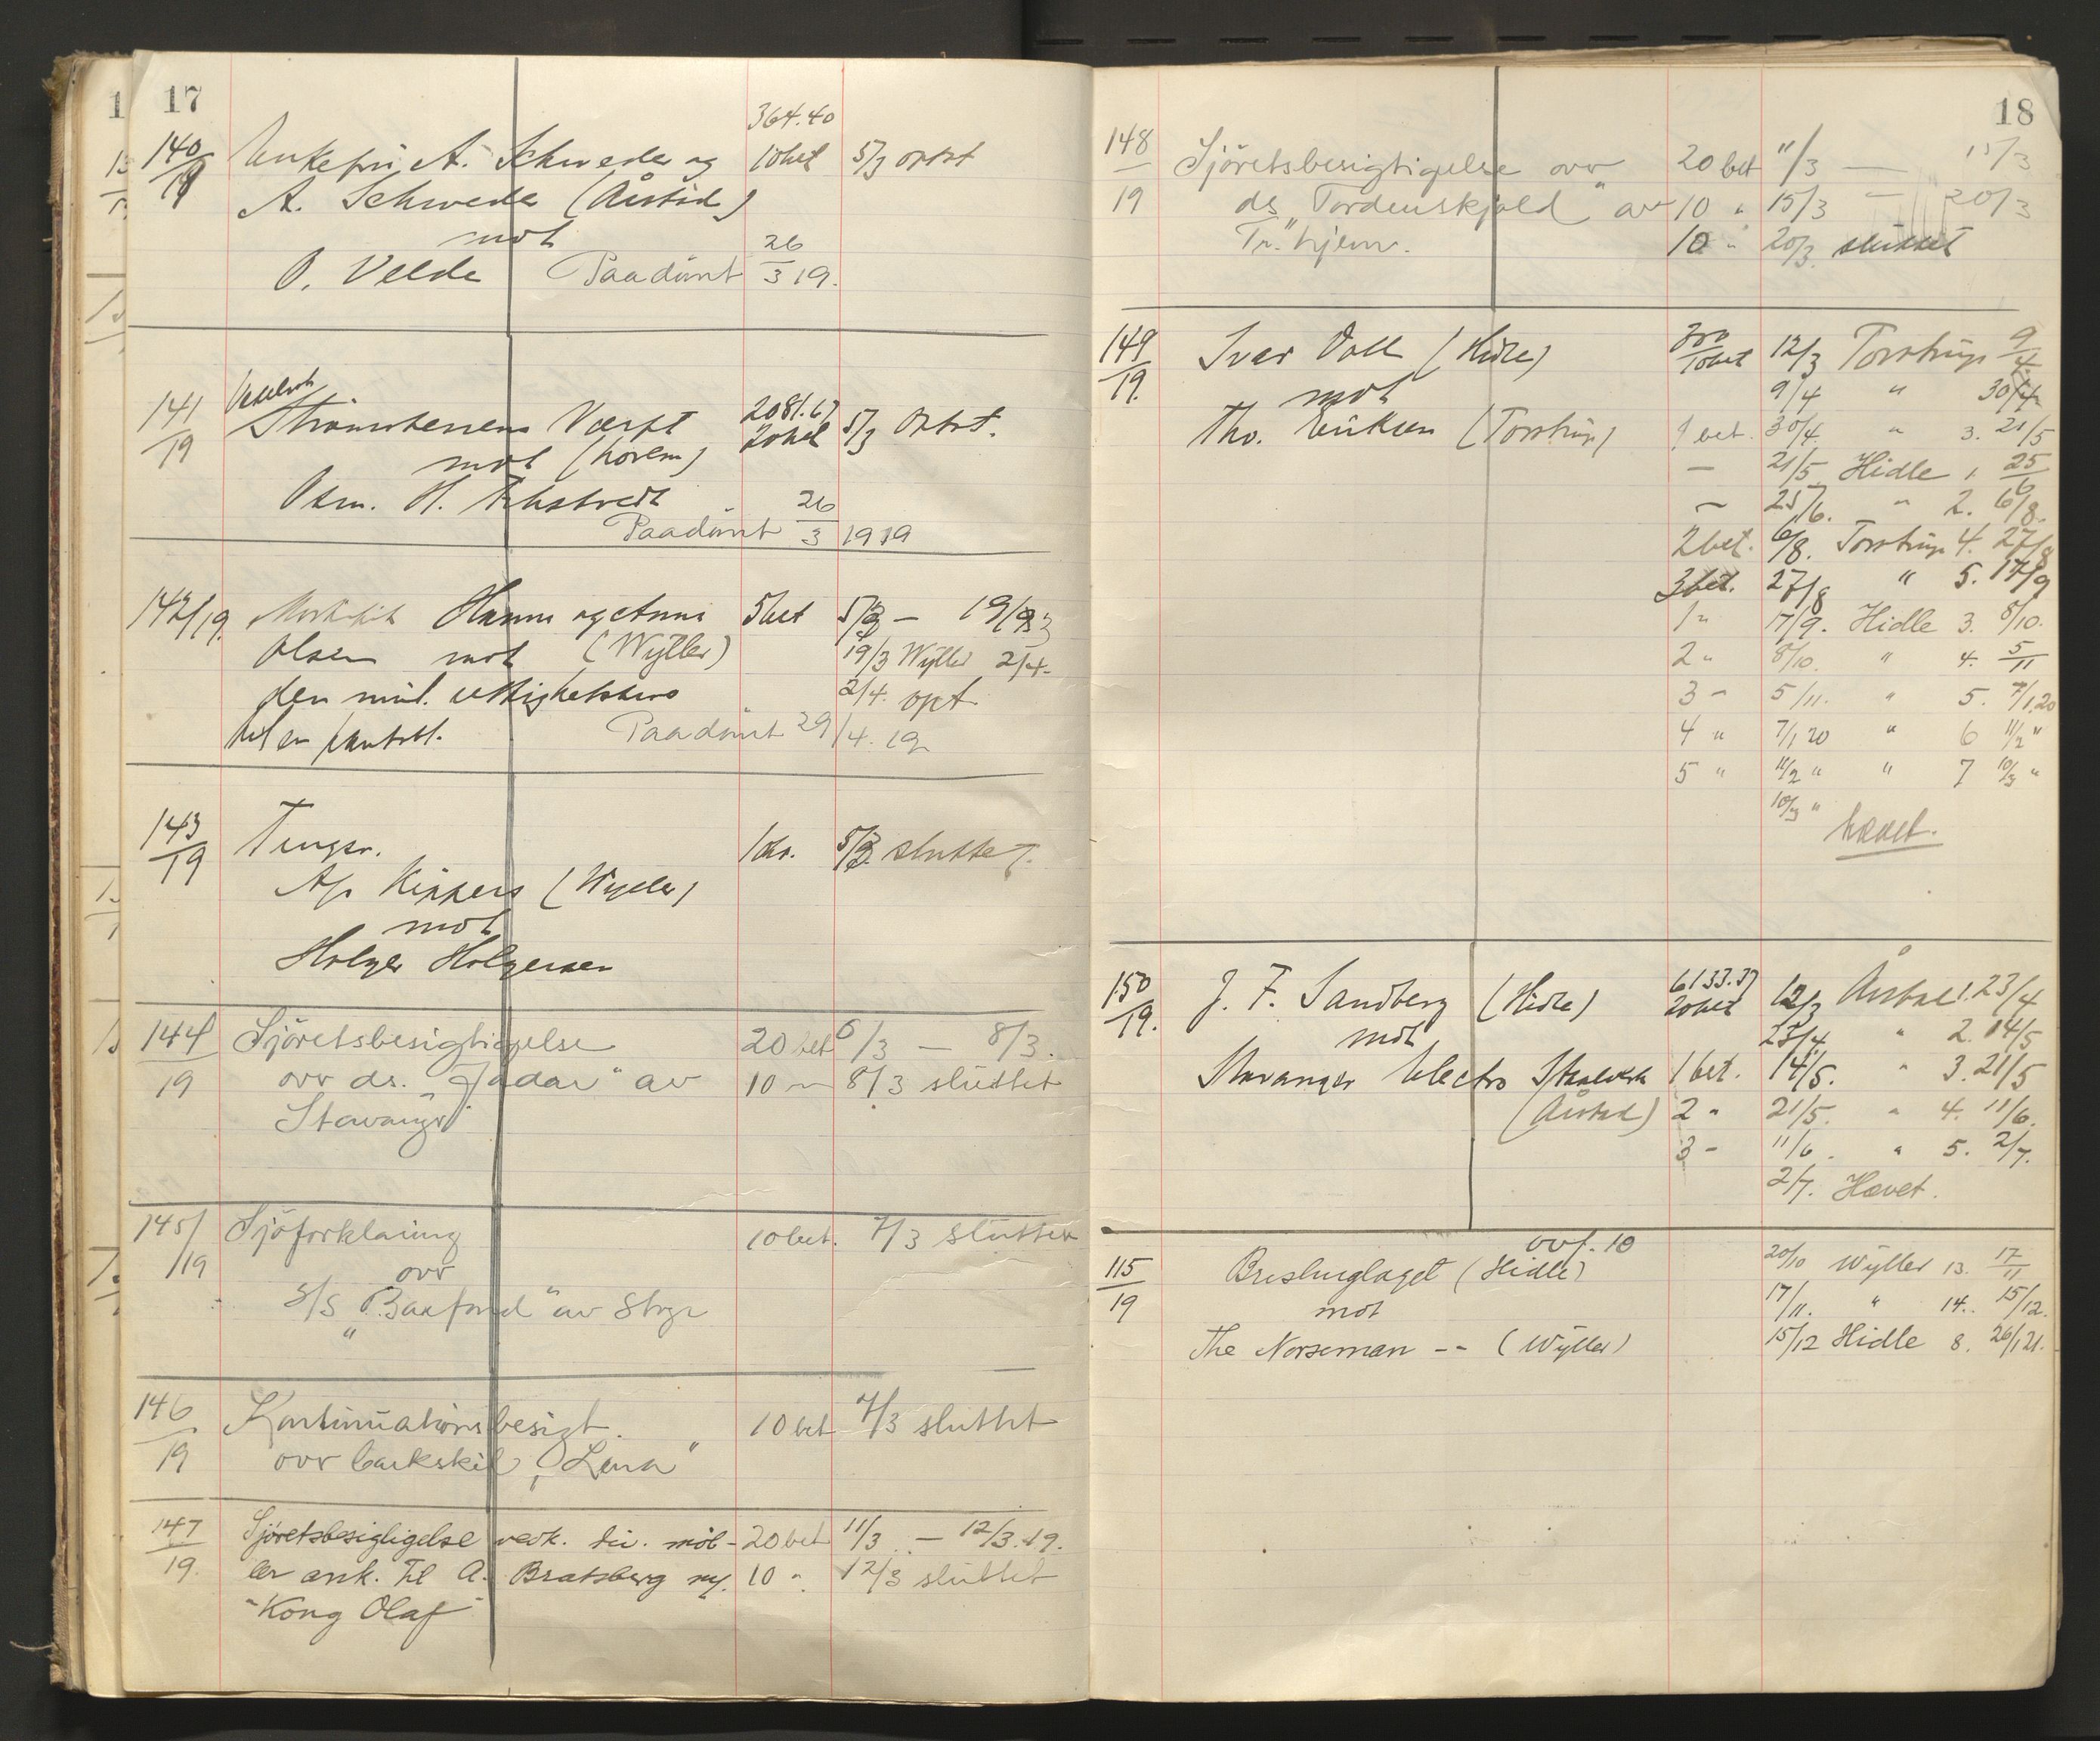 17
364.40
140/19 Enkefru A. Schweder og 10bet 5/3 optat
A. Schweder (Aarstad)
mot
O. Velde Paadømt 26/3 19.
141/19 Strømstensens Værft 2081.67 20bet 5/3 Optat.
mot
Osm. H. Paadømt 26/3 1919
142/19. Hanna og Anna 5bet 5/3 – 19/3
Olsen mot (Wyller) 19/3 Wyller 2/4.
den mul. rettighetshaver 2/4. opt
til en pantobl. Paadømt 29/4. 19
143/19 Tingsv. 1kr. 5/3 sluttet.
A/s Kippers (Wyller)
mot
Holger Holgersen
144/19 Sjöretsbesigtigelse 20 bet 6/3 – 8/3.
ovr ds. "Jadar" av 10 " 8/3 sluttet
Stavanger
145/19 Sjöforklaring 10 bet. 7/3 sluttet
ovr
S/S "Baxfond" av Stvgr
146/19 Kontinuationsbesigt. 10 bet 7/3 sluttet
ovr barkskib "Lena"
147/19. Sjöretsbesigtigelse vedk. div. möb- 20 bet 11/3 – 12/3.19.
ler ank. til A. Bratsberg m/. 10 " 12/3 sluttet
"Kong Olaf"
18
148/19 Sjöretsbesigtigelse ovr 20 bet 11/3 — 15/3
ds "Tordenskjold" av 10 " 15/3 — 20/3
Tr.hjem. 10 " 20/3 sluttet
149/19. Ivar Voll (Hidle) 10bet 12/3 Torstrup 9/4
mot 9/4 " 30/4
Tho. Eriksen (Torstrup) 1 bet. 30/4. " 3. 21/5
— 21/5 Hidle 1. 25/6
— 25/6. " 2. 6/8.
2 bet. 6/8. Torstrup 4. 27/8
3 bet. 27/8 " 5. 17/9
1 " 17/9. Hidle 3. 8/10.
2 " 8/10. " 4. 5/11
3 " 5/11. " 5. 7/1.20
4 " 7/1 20 " 6 11/2 "
5 " 11/2 " " 7 10/3 "
10/3 "
hævet.
150/19. J. F. Sandberg (Hidle) 6133.37 20bet 12/3 Aarstad 1. 23/4
mot 23/4 " 2. 14/5
Stavanger Electro Staalverk 1 bet. 14/5. " 3. 21/5
(Aarstad) 2 " 21/5. " 4. 11/6.
3 " 11/6. " 5. 2/7.
2/7. Hævet.
ovf. 10
115/19 Brislinglaget (Hidle) 20/10 Wyller 13. 17/11
mot 17/11. " 14. 15/12.
The Norseman -- (Wyller) 15/12 Hidle 8. 26/1 21.